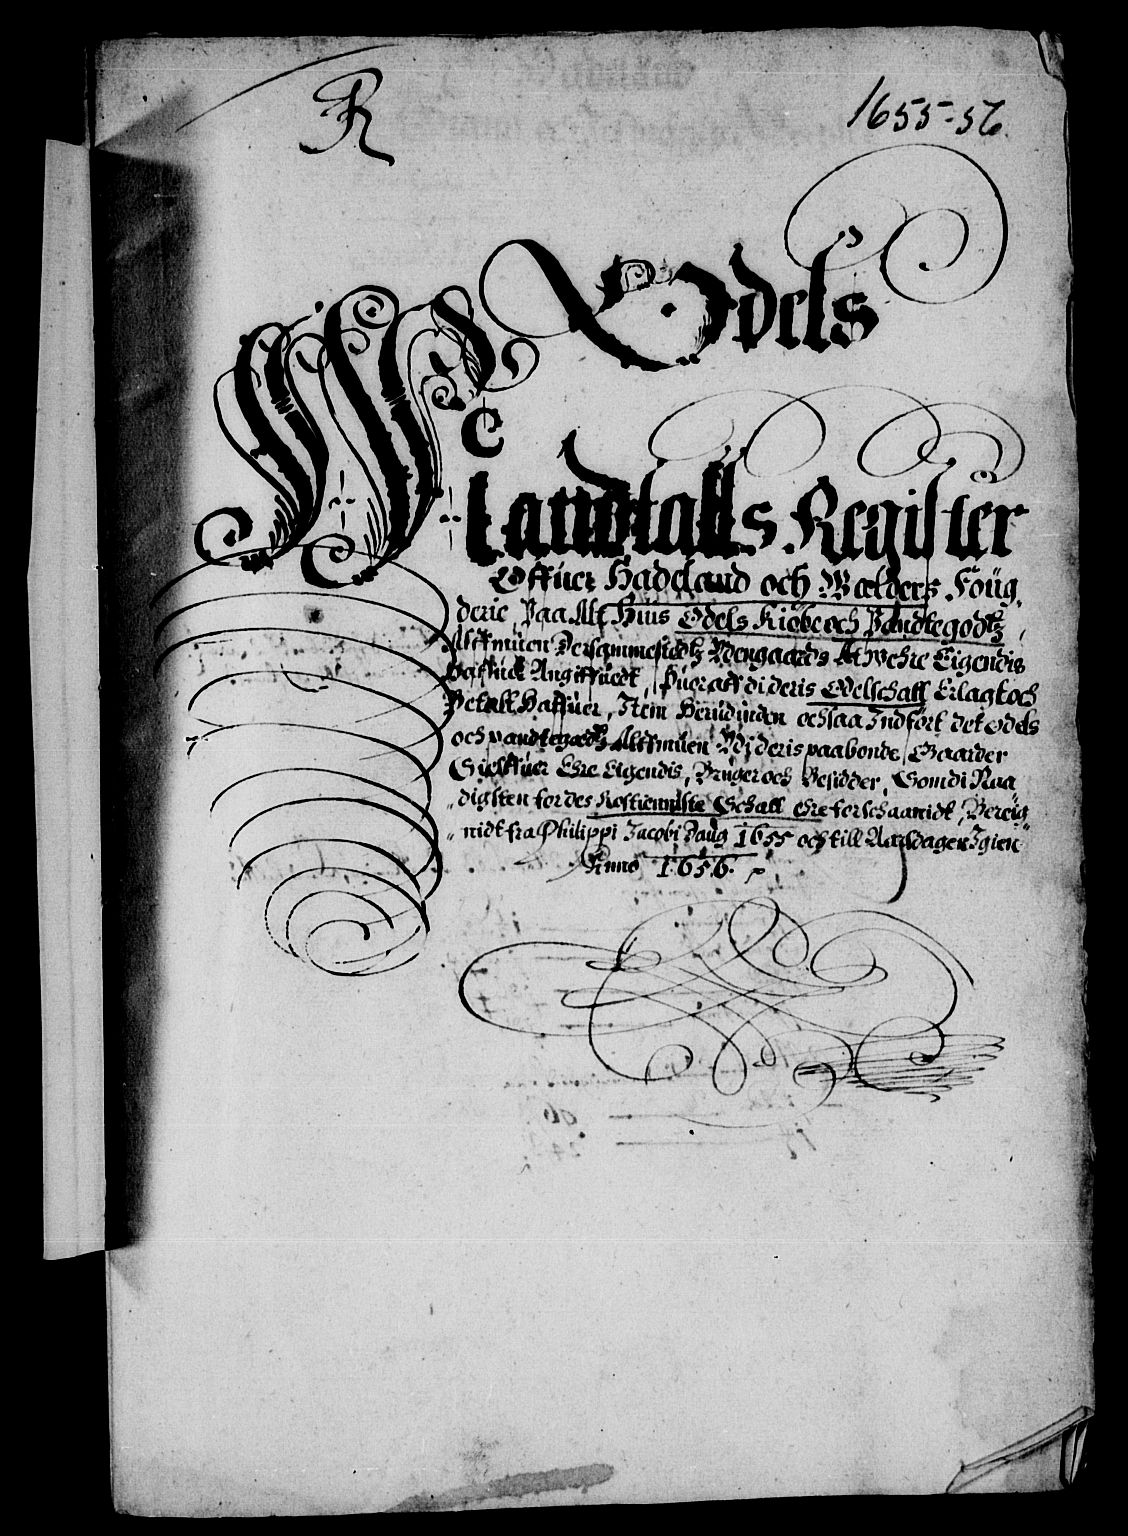 R
1655-56.
Odels
Mandtalls Register
Offuer Hadeland och Walders Foug,
derie, Paa Alt Huis Odels Kiøbe och Pandtegodtz
Alffmuen Der sammestedtz Udengaards At wehre Eigendis
Haffuer Angiffuedt, Huoraff di deris Odelschatt Erlagt och
Betalt Haffuer, Item Herudinden och saa Indført det odels
och pandtegodtz Alffmuen Udj deris paabonde Gaarder
Sielffuer Ehre Eigendis, Bruger och Besidder, Som di Raa
digsten for des Rostienniste Schatt ehre forschaanidt, Bereig
nidt fra Philippi Jacobi Daug 1655 och till Aarsdagen Igien
Anno 1656.